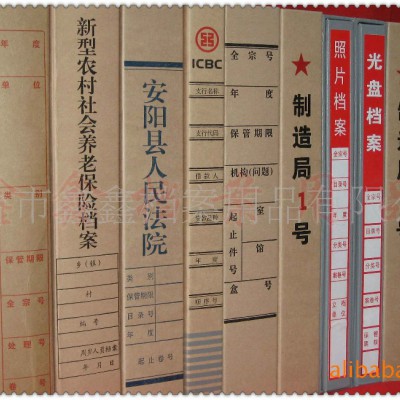 年度
单位
保管期限
全宗号
处理号
新型农村社会养老保险档案
乡(镇)
村
编号
安阳县人民法院
类别
保管期限
目录号
年度
起止卷号
ICBC
支行名称
支行代码
借款人
年度
全宗号
年度
保管期限
机构(问题)
起止件号
室
馆
盒号
制造局1号
照片档案
全宗号
目录号
年度
分类号
光盘档案
全宗号
目录号
分类号
号
市鑫鑫档案用品有限
alibaba